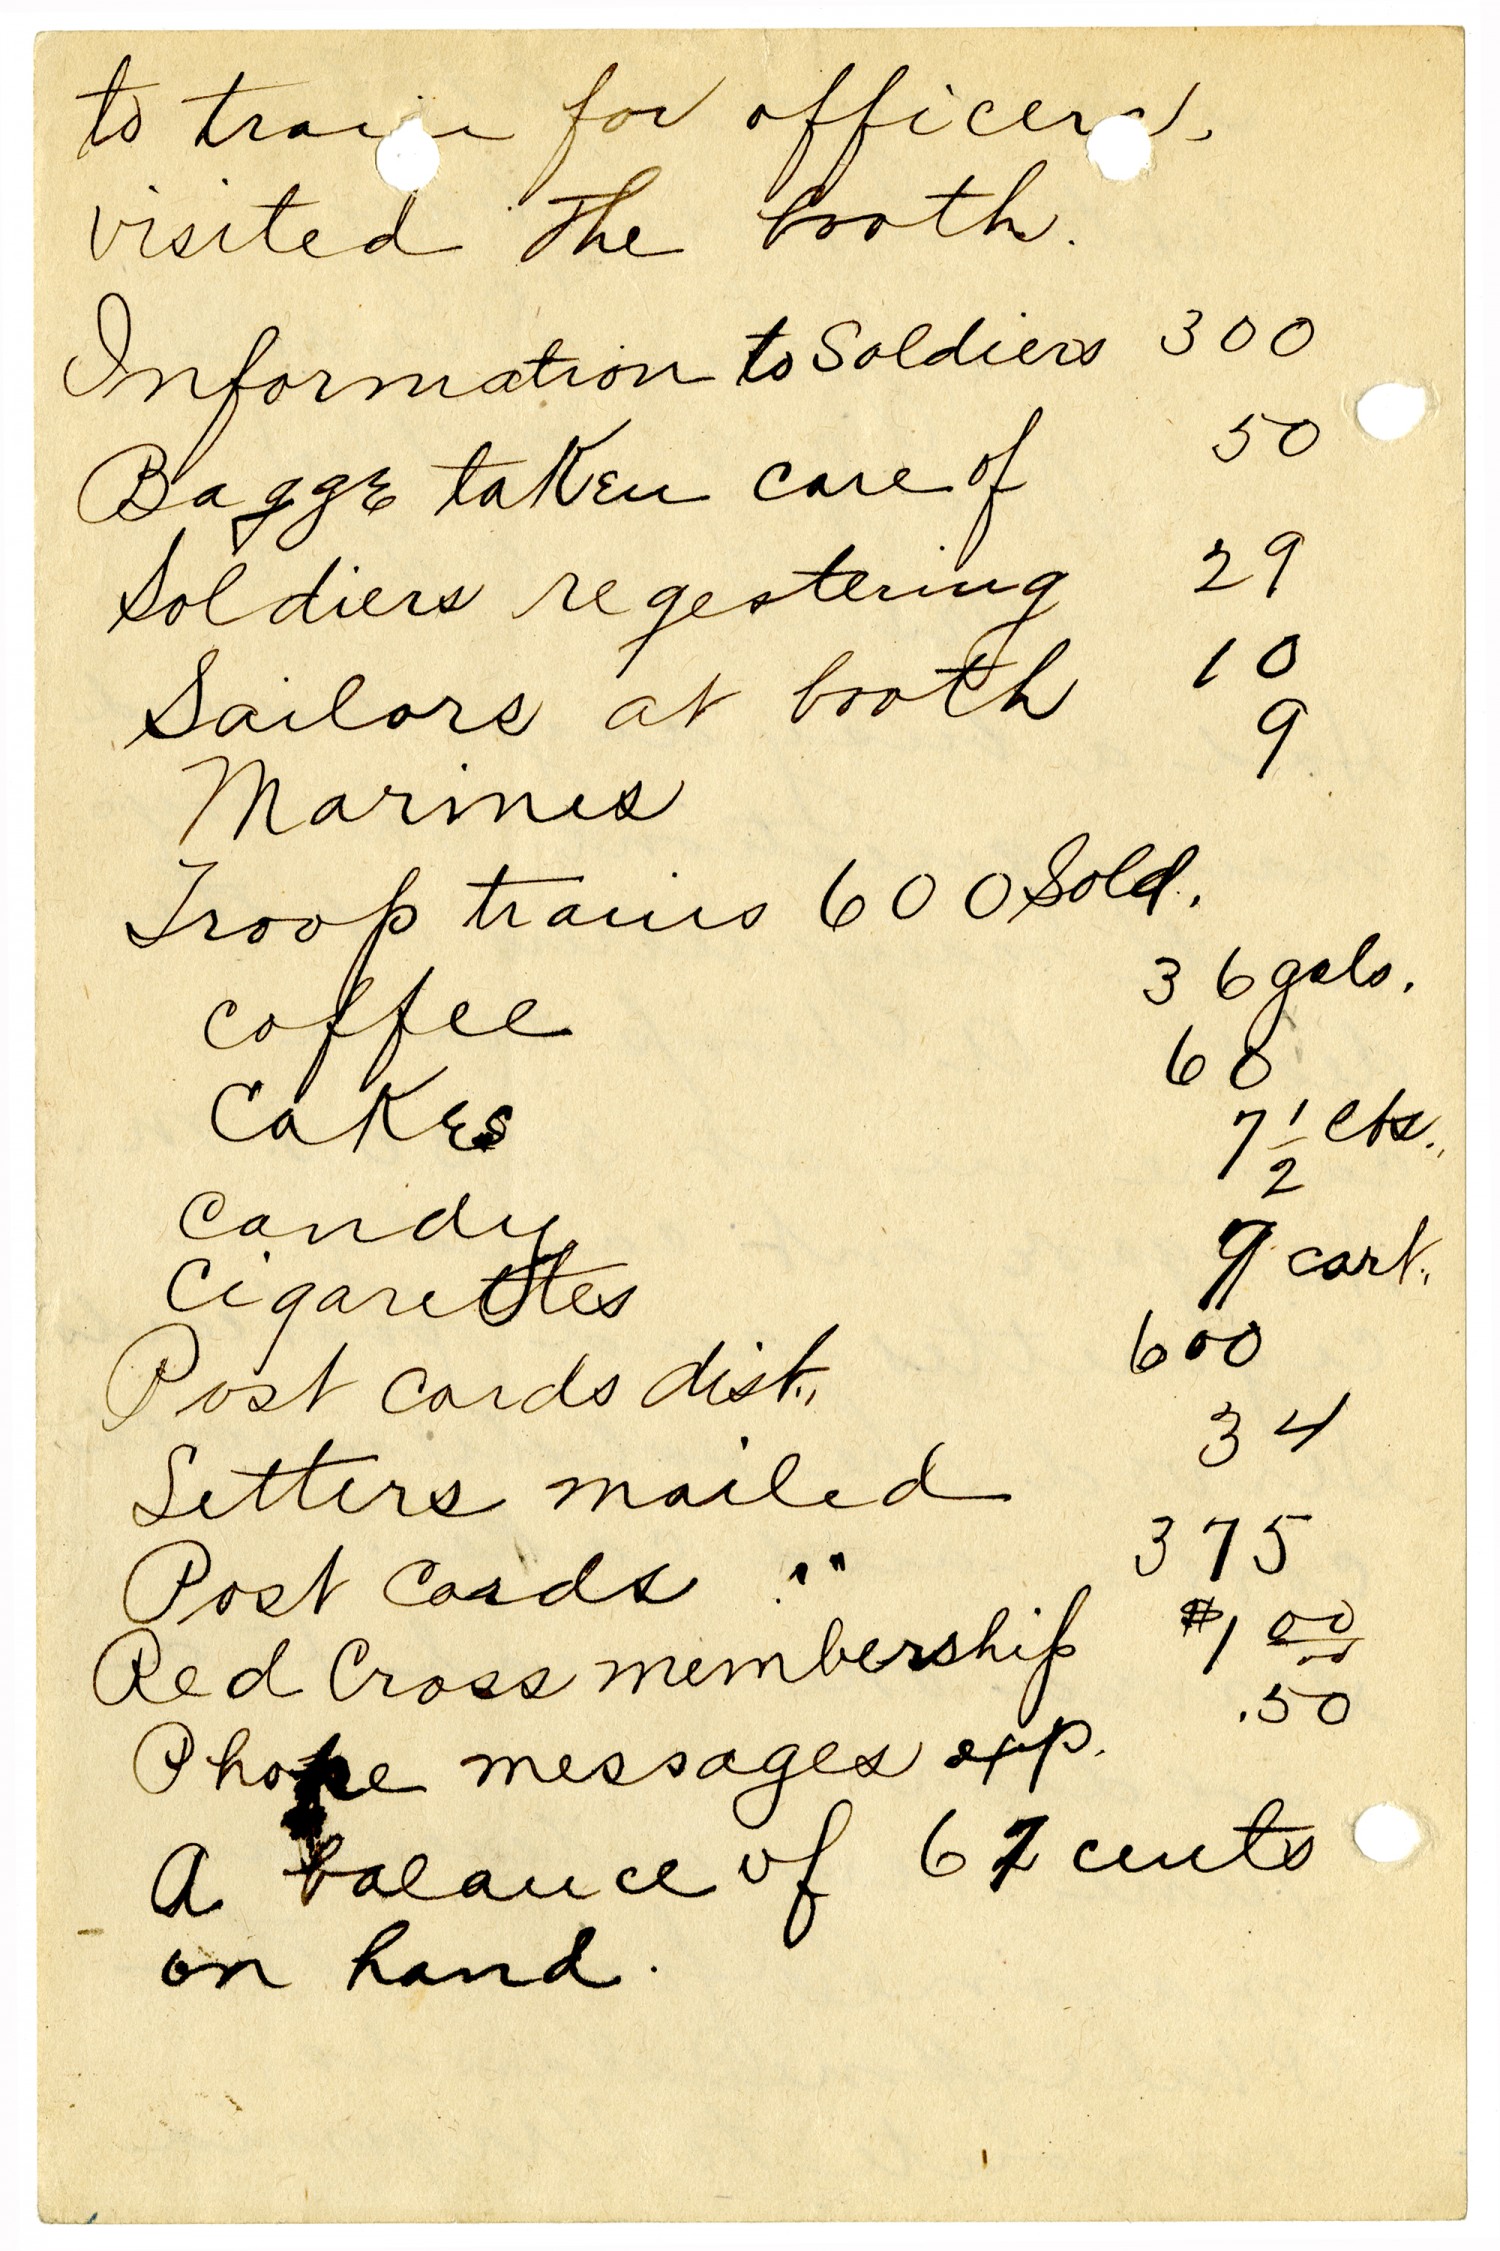 to train for officers,
visited the booth.
Information to Soldiers 300
Bagge taken care of 50
Soldiers regestering 29
Sailors at booth 10
Marines 9
Troop trains 600 Sold.
coffee 36 gals.
Cakes 60
candy 7 1/2 lbs.
Cigarettes 9 cart.
Post cards dist. 600
Letters mailed 34
Post Cards " 375
Red Cross membership $1 00/00
Phone messages exp. .50
A balance of 62 cents
on hand.